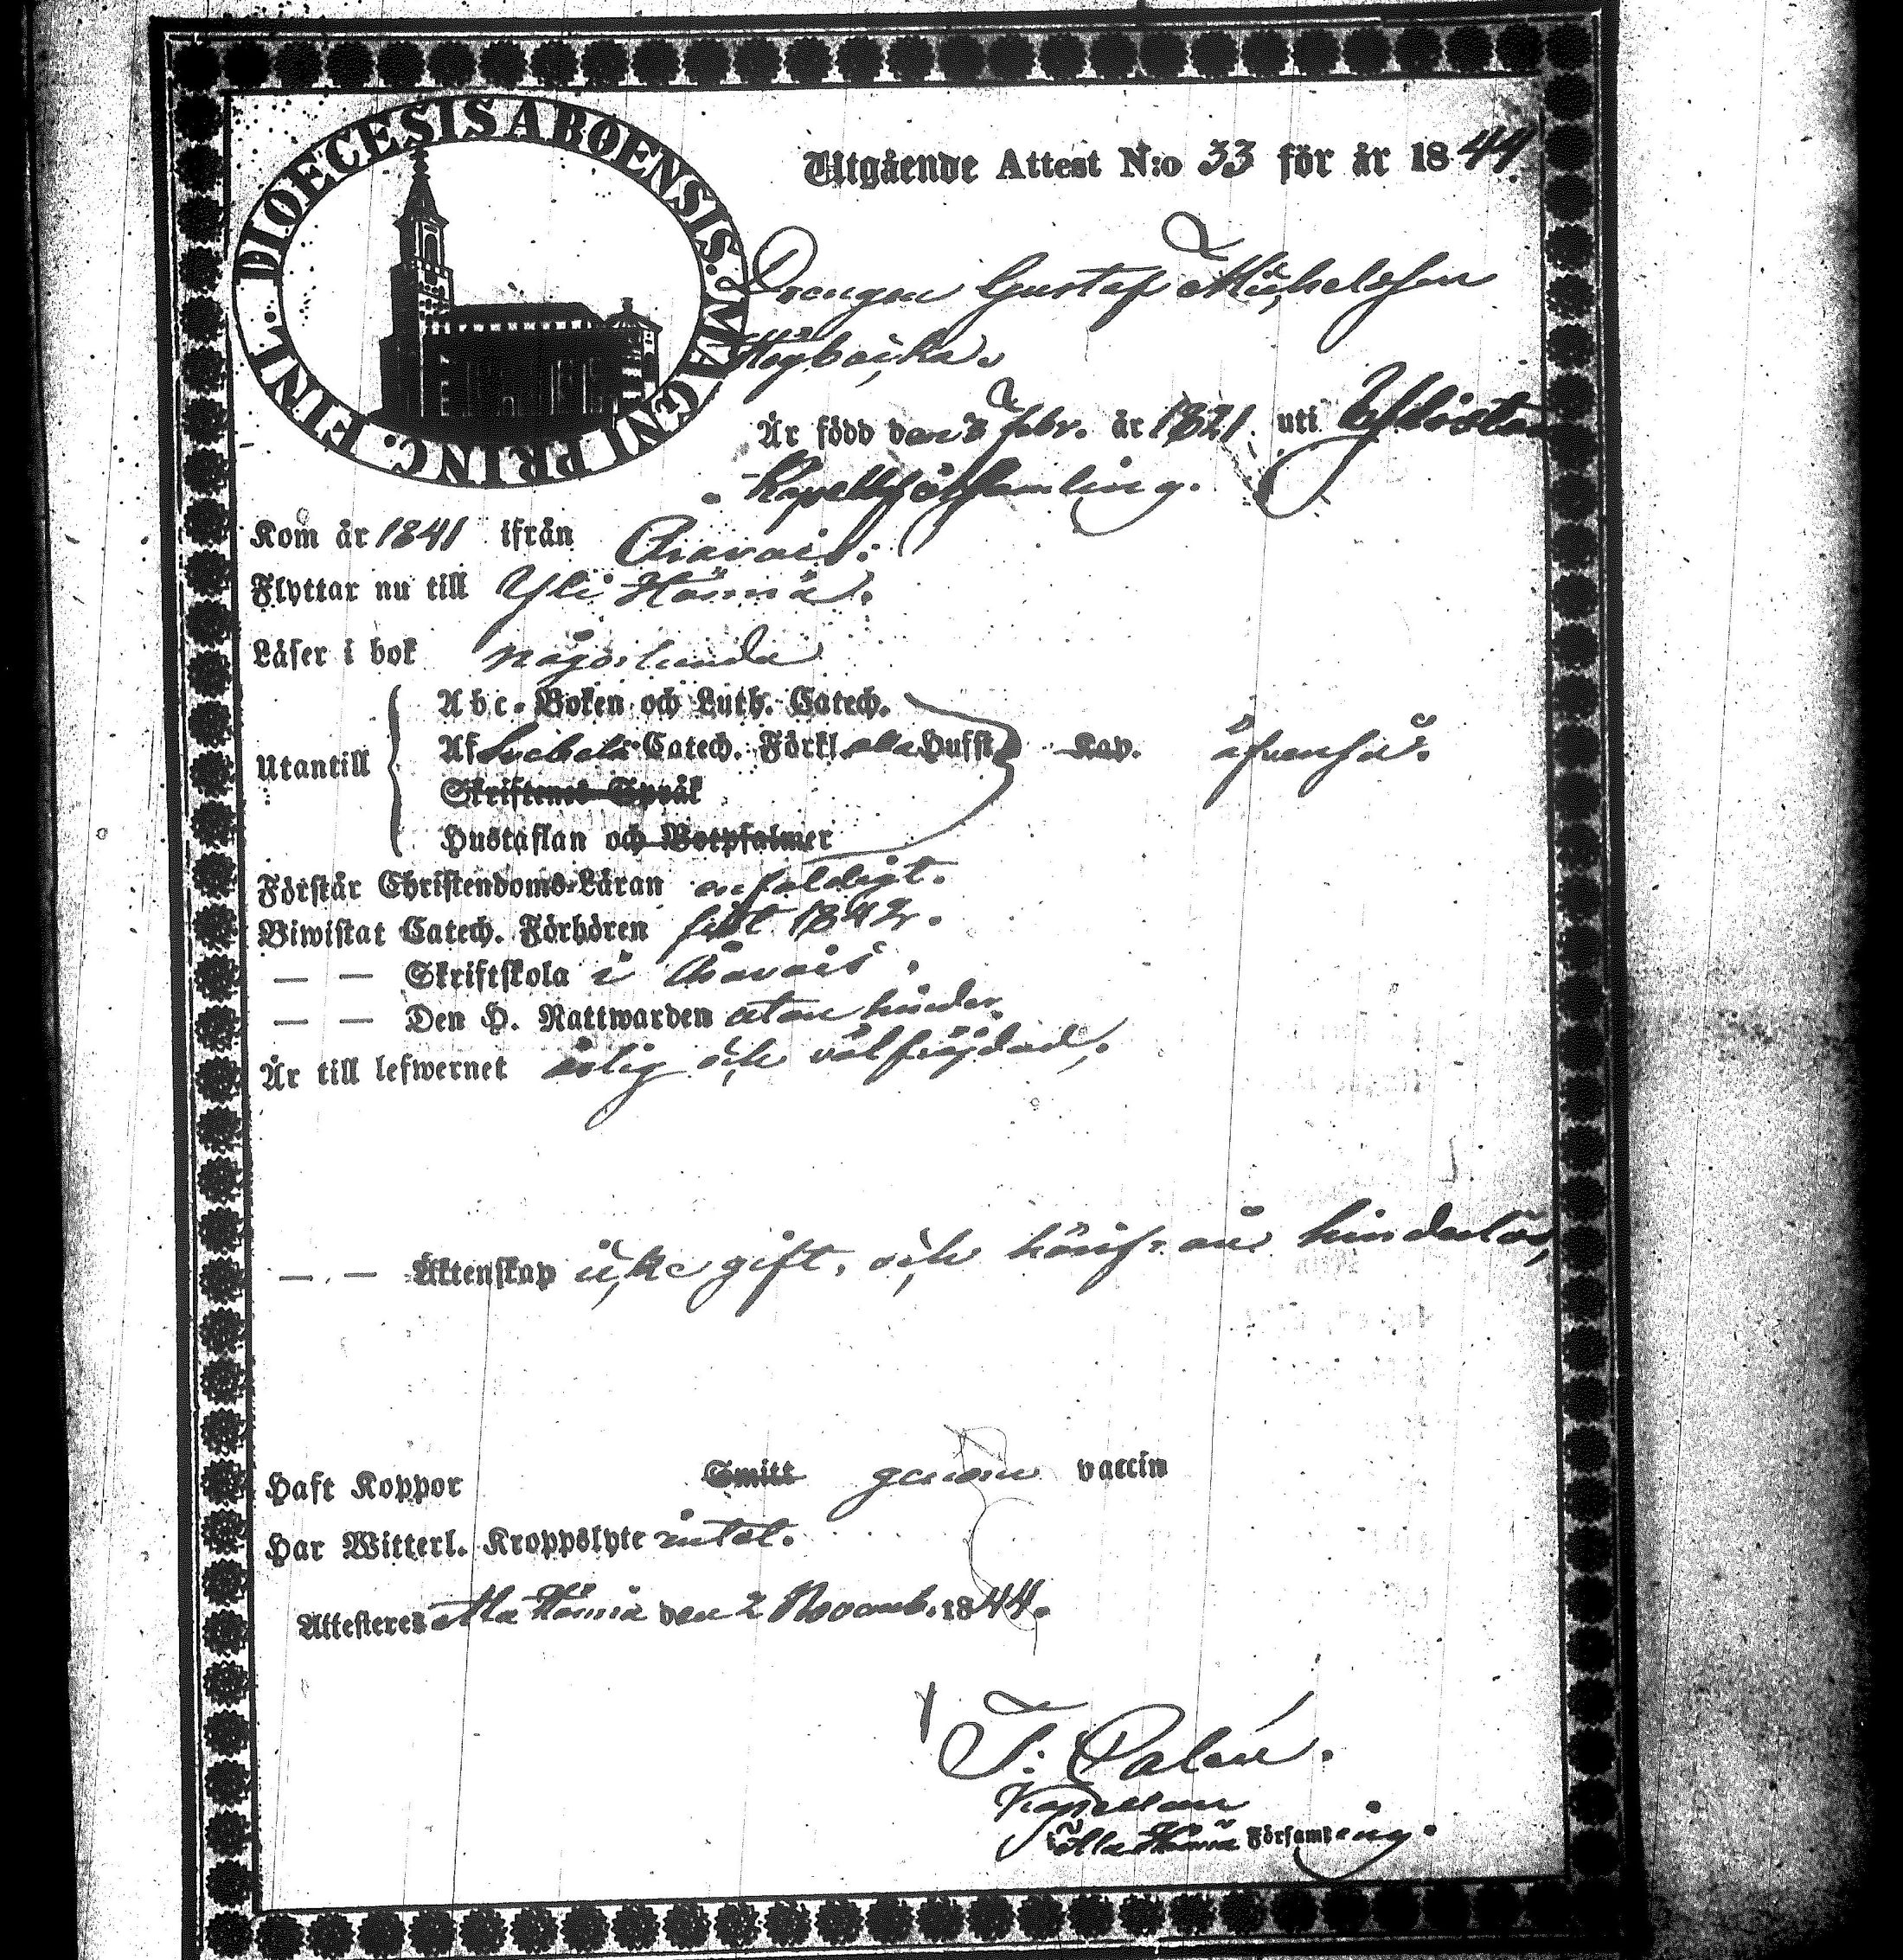 DIOECESIS ABOENSIS. MAGNI PRINC. FINL.
Utgående Attest N:o 33 för år 1844
Drengen Gustaf Michelsson
Högbacka.
Är född den 3 Febr. år 1821. uti Ylistaro
Kapellsförsamling.
Kom år 1841 ifrån Oravais.
Flyttar nu till Yli Härmä.
Läser i bok någorlunda
Utantill
Abc-Boken och Luth. Catech.
Af Svebelii Catech. Förkl. alla Hufst. Kap. äfvenså.
Skriftenes Språk
Hustaflan och Botpsalmer
Förstår Christendoms-Läran enfaldigt.
Biwistat Catech. Förhören sist 1842.
— — Skriftskola i Oravais.
— — Den H. Nattwarden utan hinder.
Är till lefwernet ärlig och välfräjdad,
— — Äktenskap icke gift, och härifrån hinderlös,
Haft Koppor Smitt genom vaccin
Har Witterl. Kroppslyte intet.
Attesteras Ala Härmä den 2 Novemb. 1844.
Palén.
Kapellan
i Ala Härmä Församling.